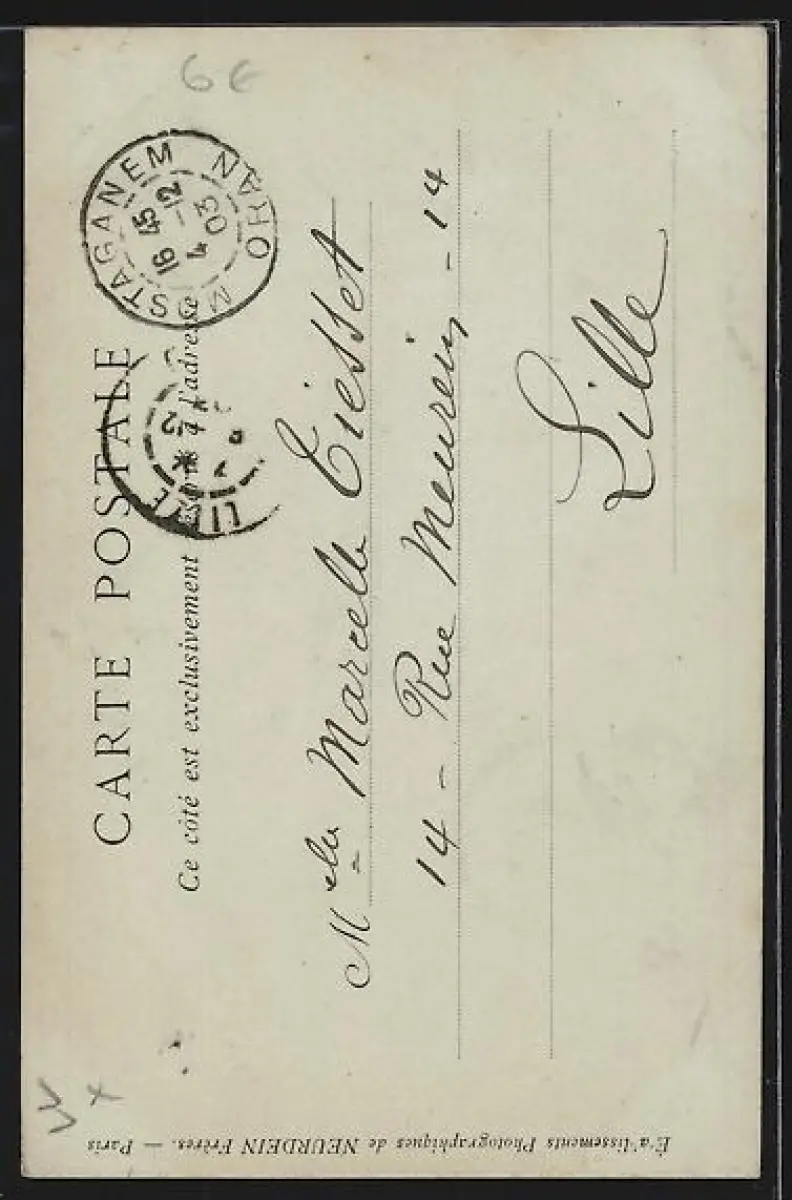 CARTE POSTALE
Ce côté est exclusivement l'adresse
MOSTAGANEM ORAN
16 45
4 -12
03
LILLE
Melle Marcelle Tiesset
14 - Rue Meurein - 14
Lille
6 €
Établissements Photographiques de NEURDEIN Frères. — Paris